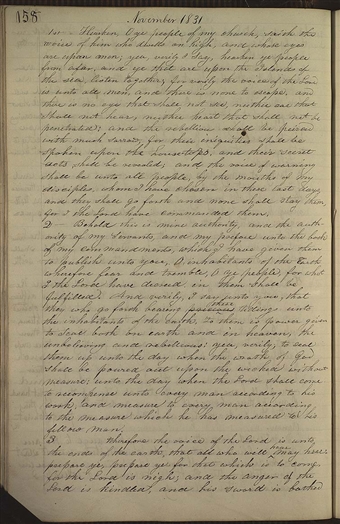 158
November 1831
1st - Hearken, O ye people of my church, saith the
voice of him who dwells on high, and whose eyes
are upon men; yea, verily I say, hearken ye people
from afar, and ye that are upon the Islands of
the sea, listen together; for verily the voice of the Lord
is unto all men, and there is none to escape, and
there is no eye that shall not see, neither ear that
shall not hear, neither heart that shall not be
penetrated; and the rebellious shall be pierced
with much sorrow, for their iniquities shall be
spoken upon the housetops, and their secret
acts shall be revealed; and the voice of warning
shall be unto all people, by the mouths of my
disciples, whom I have chosen in these last days,
and they shall go forth and none shall stay them,
for I the Lord have commanded them.
2 Behold this is mine authority, and the auth-
ority of my servants, and my Preface unto the book
of my commandments, which I have given them
to publish unto you, O inhabitants of the earth
wherefore fear and tremble, O ye people, for what
I the Lord have decreed, in them shall be
fulfilled. And verily, I say unto you, that
they who go forth bearing these tidings unto
the inhabitants of the earth, to them is power given
to seal both on earth and in heaven, the
unbelieving and rebellious: yea, verily, to seal
them up unto the day when the wrath of God
shall be poured out upon the wicked without
measure; unto the day when the Lord shall come
to recompense unto every man according to his
work, and measure to every man according
to the measure which he has measured to his
fellow man.
3 Wherefore the voice of the Lord is unto
the ends of the earth, that all who will hear may hear:
prepare ye, prepare ye for that which is to come,
for the Lord is nigh; and the anger of the
Lord is kindled, and his sword is bathed